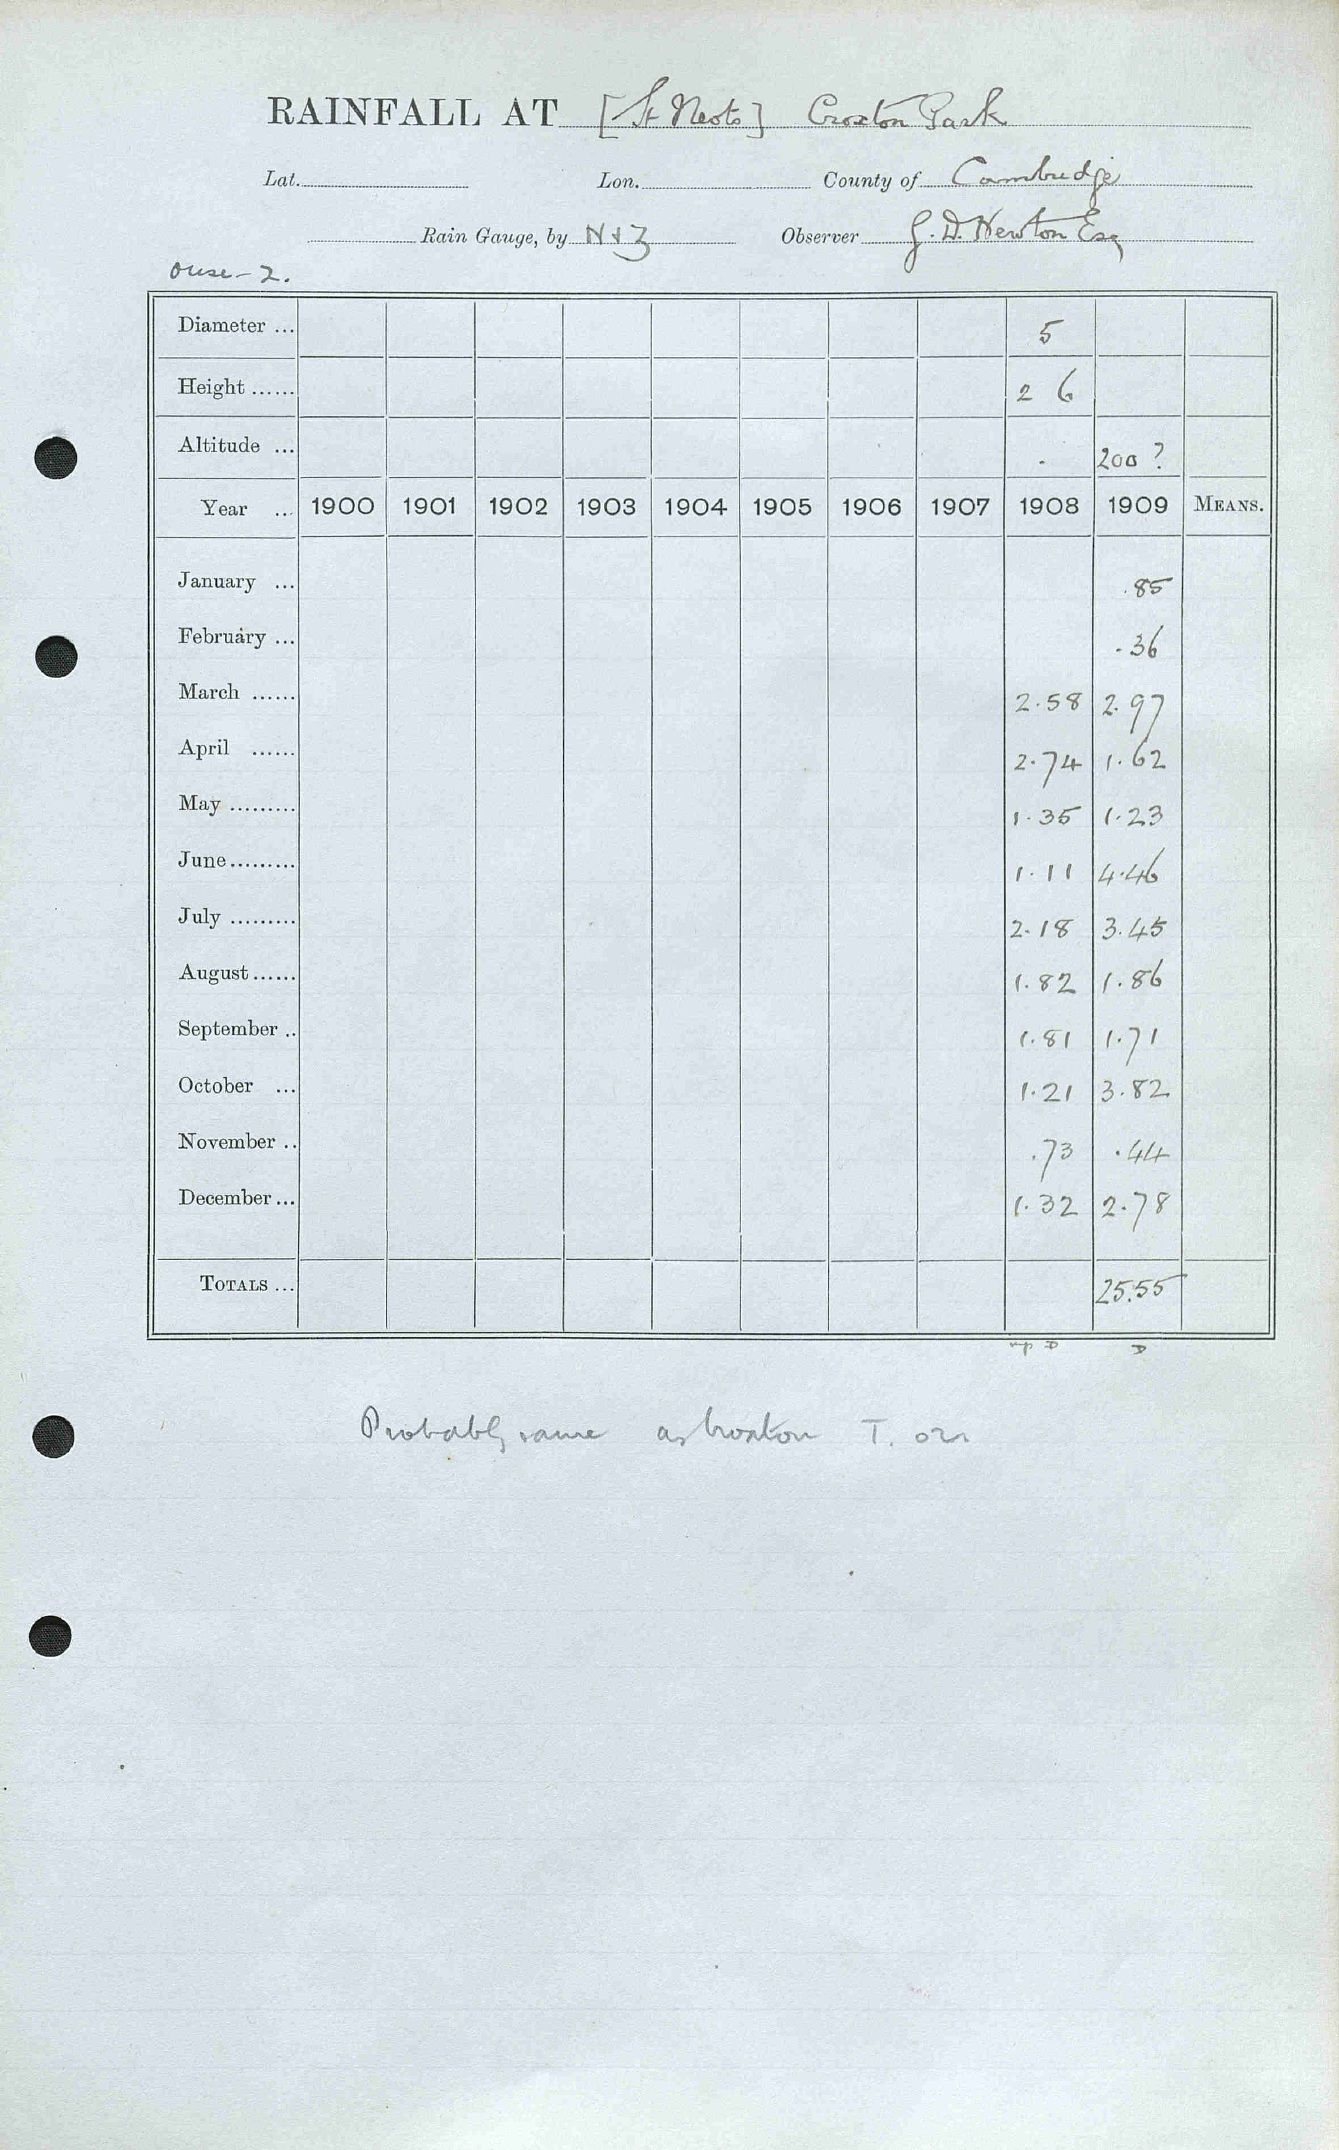 RAINFALL AT [St Neots] Croxton Park
Lat. Lon. County of Cambridge
Rain Gauge, by N & Z Observer G. D. Newton Esq
Ouse - 2.
Diameter ... 5
Height ...... 2 6
Altitude ... 200 ?
Year ... 1900 1901 1902 1903 1904 1905 1906 1907 1908 1909 MEANS.
January ... .85
February ... .36
March ...... 2.58 2.97
April ...... 2.74 1.62
May ......... 1.35 1.23
June ......... 1.11 4.46
July ......... 2.18 3.45
August ...... 1.82 1.86
September .. 1.81 1.71
October ... 1.21 3.82
November .. .73 .44
December ... 1.32 2.78
TOTALS ... 25.55
D D
Probably same as Croxton T.